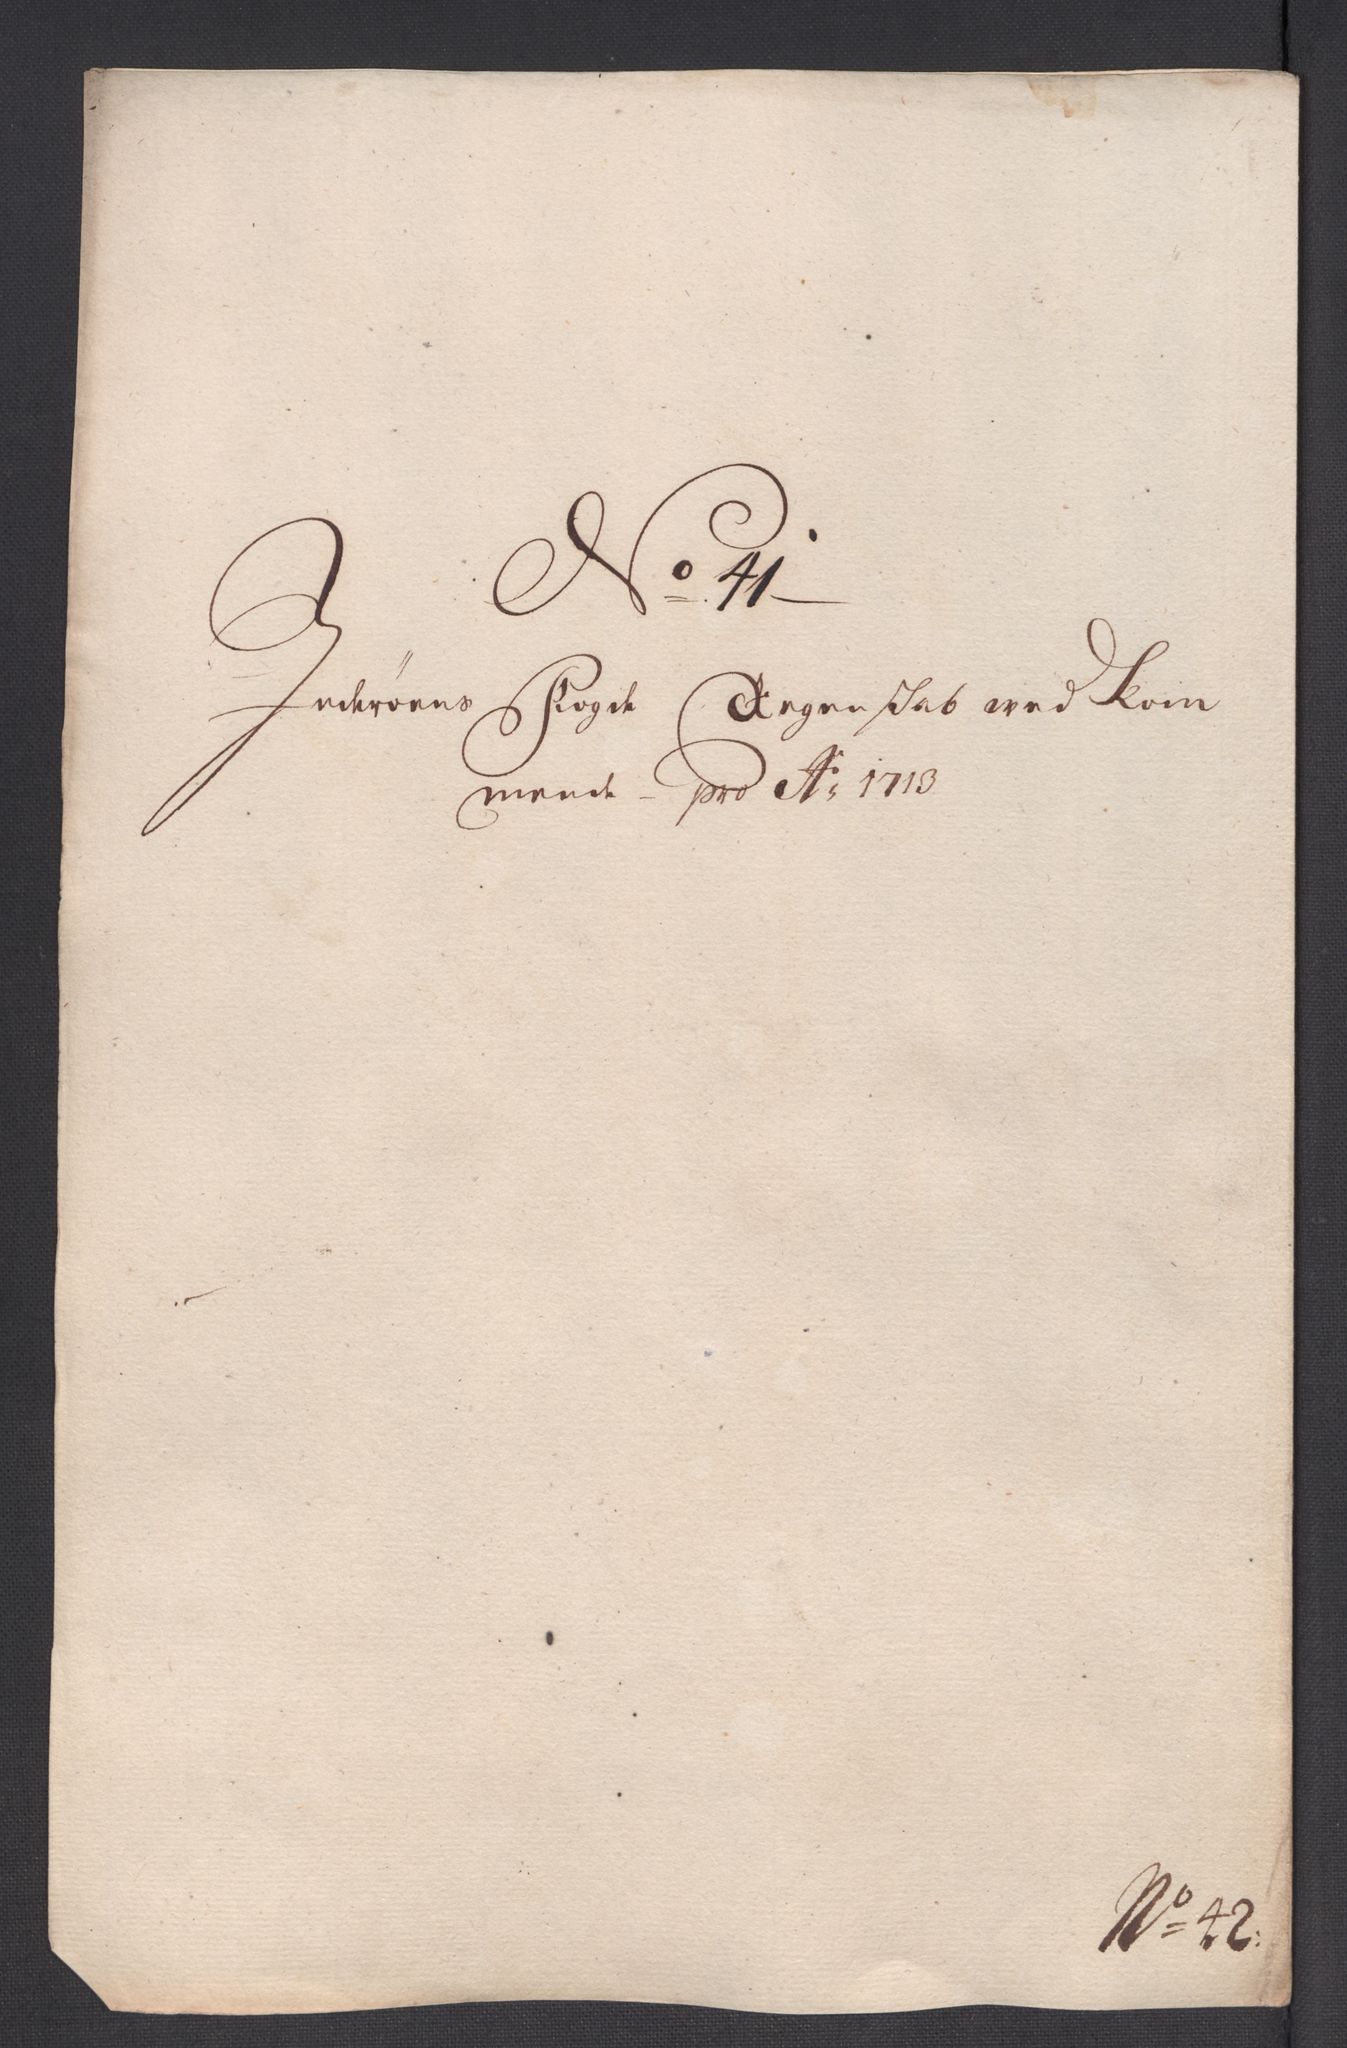 No 41
Inderöens Fogde Regenskab ved Kom
mende - pro Ao 1713
No 42: